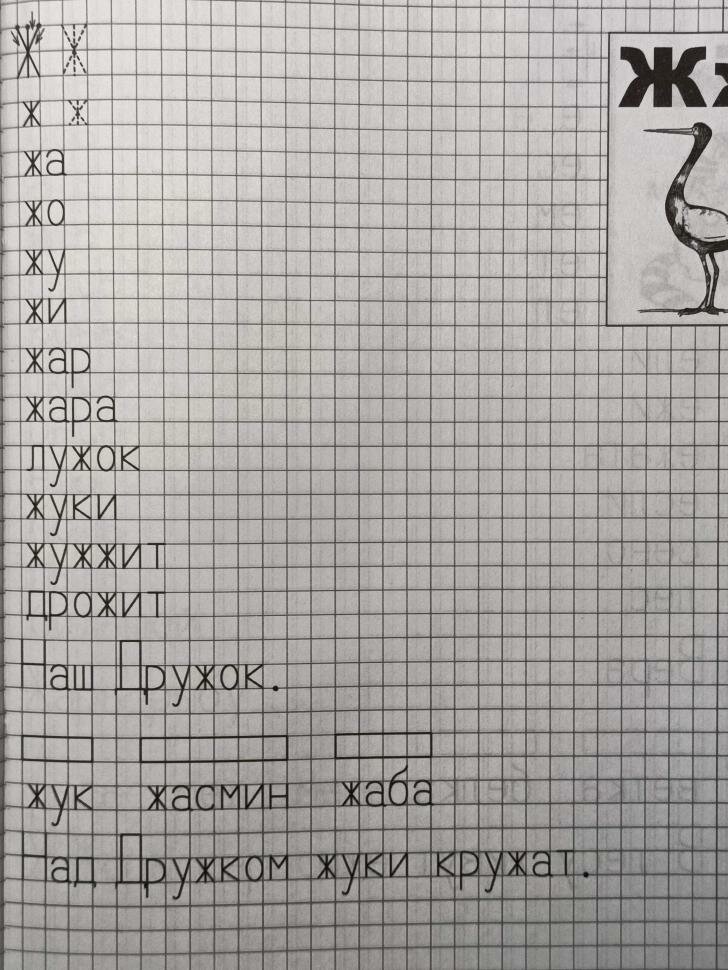 Ж Ж Жж
ж ж
жа
жо
жу
жи
жар
жара
лужок
жуки
жужжит
дрожит
Наш Дружок.
жук жасмин жаба
Над Дружком жуки кружат.